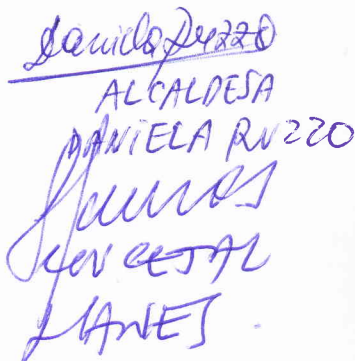 Daniela Ruzzo
ALCALDESA
DANIELA RUZZO
CONCEJAL
LLANES